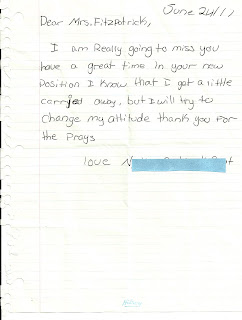 June 24/11
Dear Mrs. Fitzpatrick,
I am Really going to miss you
have a great time in your new
Position I know that I got a little
carried away, but I will try to
change my attitude thank you for
the Prays
love
Hilroy